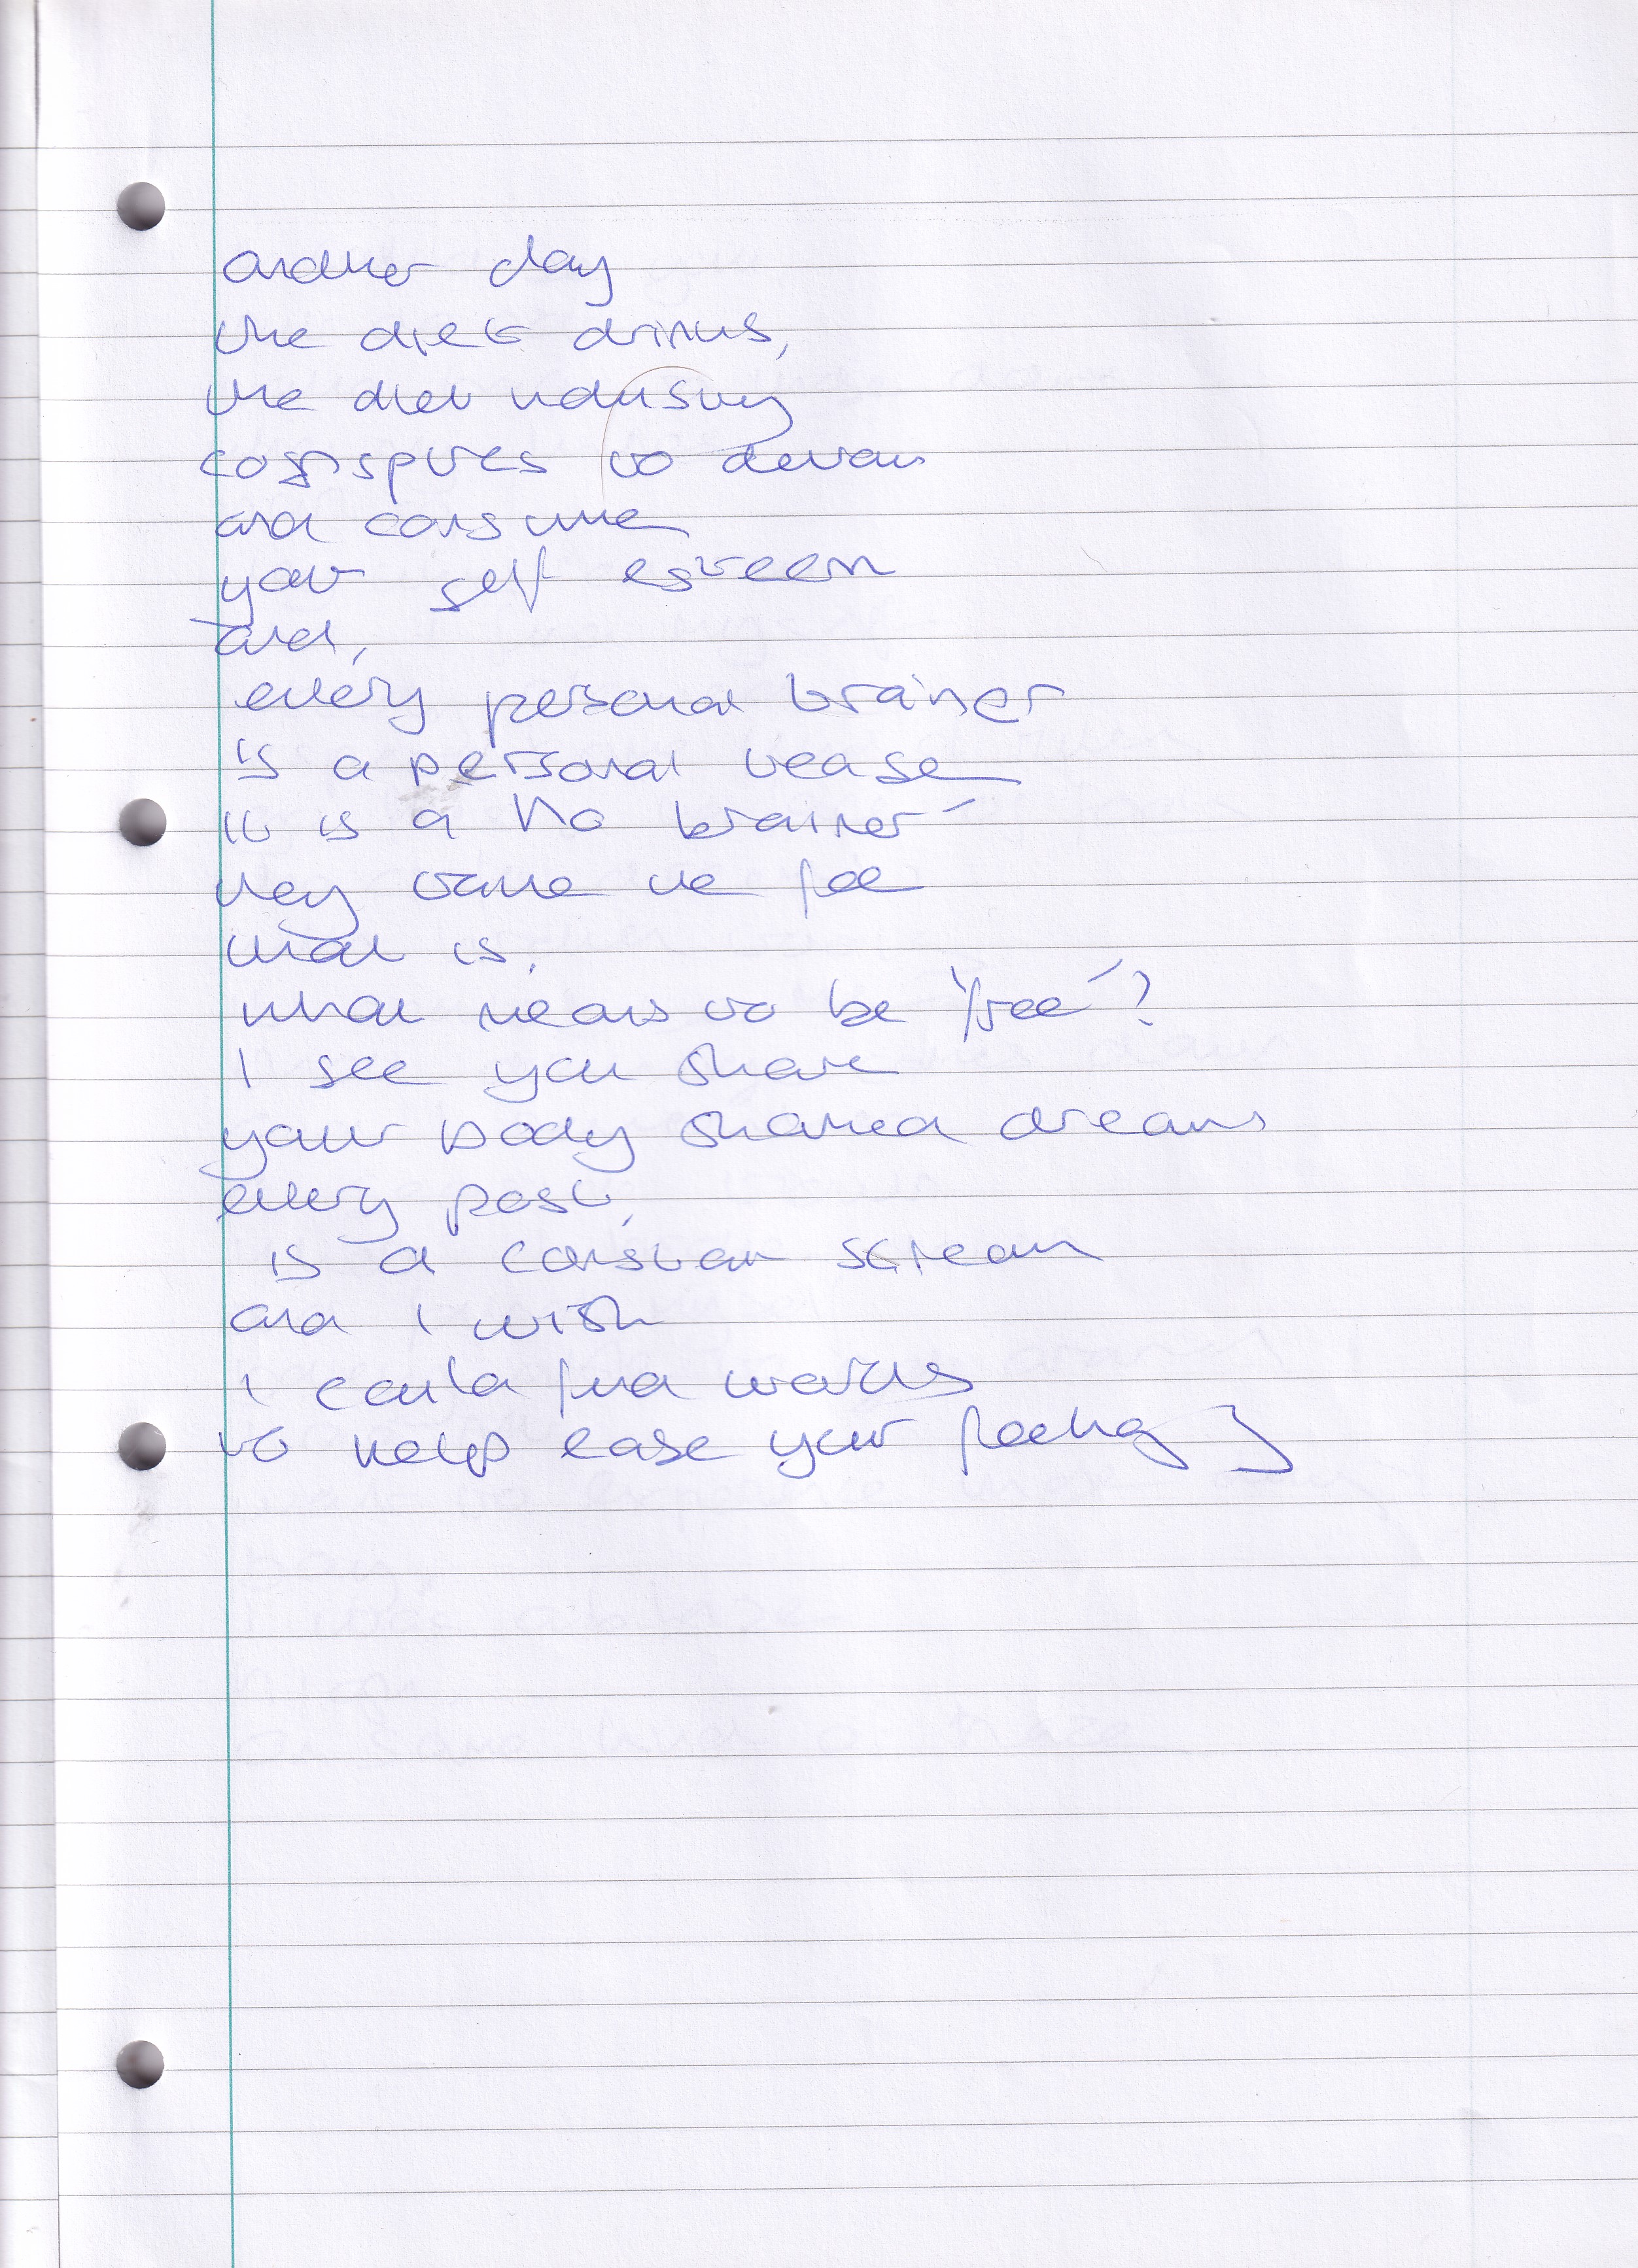 another day
the diet drinks,
the diet industry
conspires to devour
and consume
your self esteem
and,
every personal trainer
is a personal tease
it is a no brainer
they take the fee
what is,
what means to be "free"?
I see you share
your body shamed dreams
every post,
is a constant scream
and I wish
I could find words
to help ease your feelings